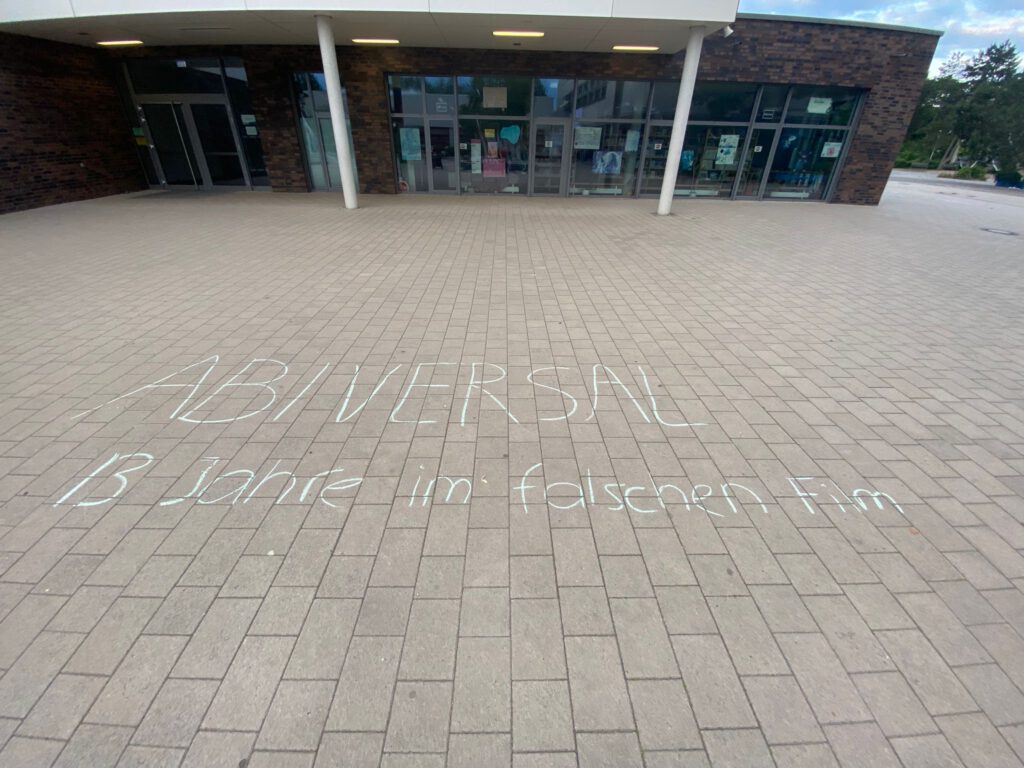 ABIVERSAL
13 Jahre im falschen Film